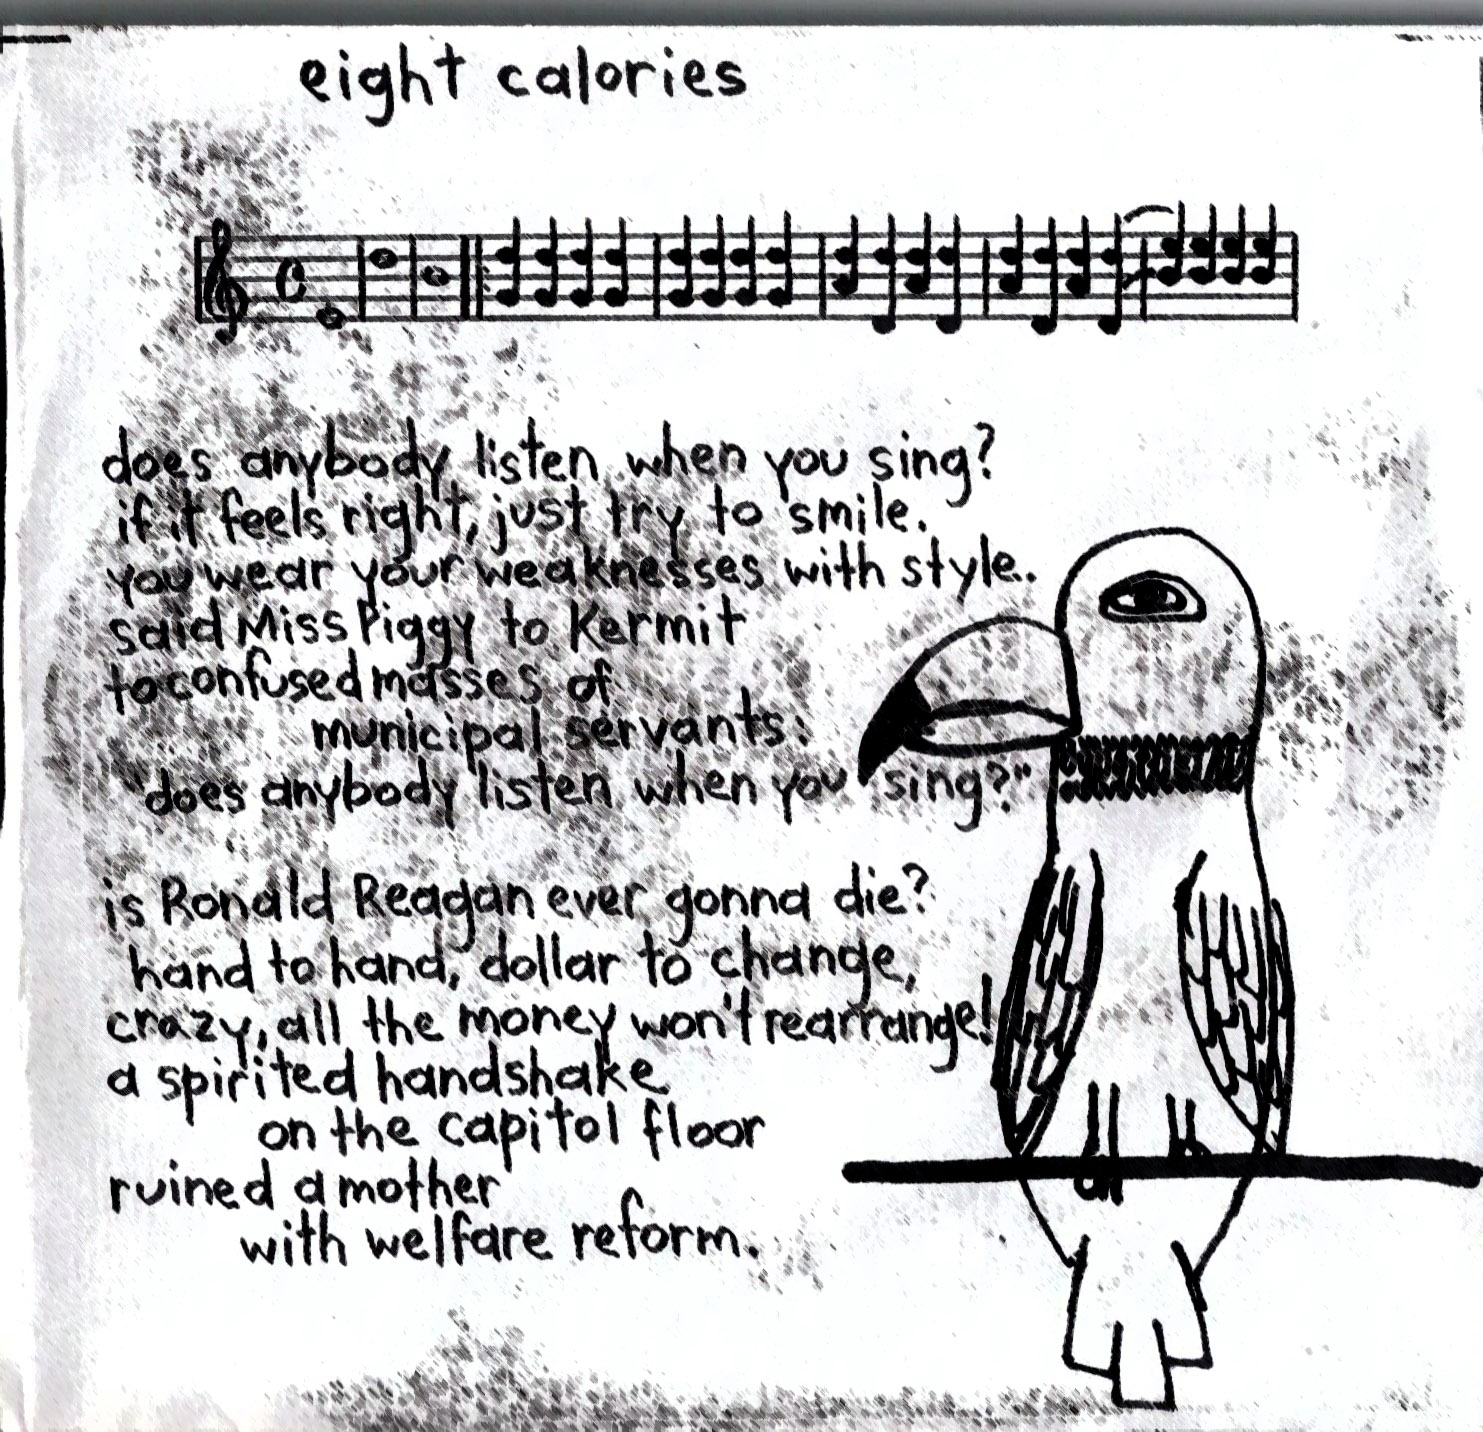 eight calories
does anybody listen when you sing?
if it feels right, just try to smile.
you wear your weaknesses with style.
said Miss Piggy to Kermit
to confused masses of
municipal servants:
"does anybody listen when you sing?"
is Ronald Reagan ever gonna die?
hand to hand, dollar to change,
crazy, all the money won't rearrange!
a spirited handshake
on the capitol floor
ruined a mother
with welfare reform.